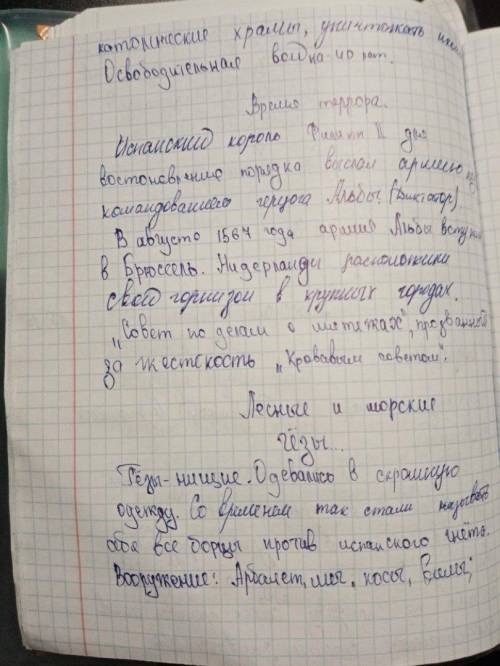 католические храмы, уничтожать
Освободительная война - 40 лет.
Время террора.
Испанский король Филипп II для
востоновление порядка выслал армию
командованием герцога Альбы (Диктатор)
В августо 1567 года армия Альбы вступи
в Брюссель. Нидерланды расположили
свой горнизон в крупных городах.
„Совет по делам о мятежах", прозванной
за жестскость „Кровавым советом".
Лесные и морские
гёзы...
Гёзы - нищие. Одевались в скромную
одежду. Со временем так стали называть
себя все борцы против испанского гнёта.
Вооружение: Арбалет, мы, косы, вилы;